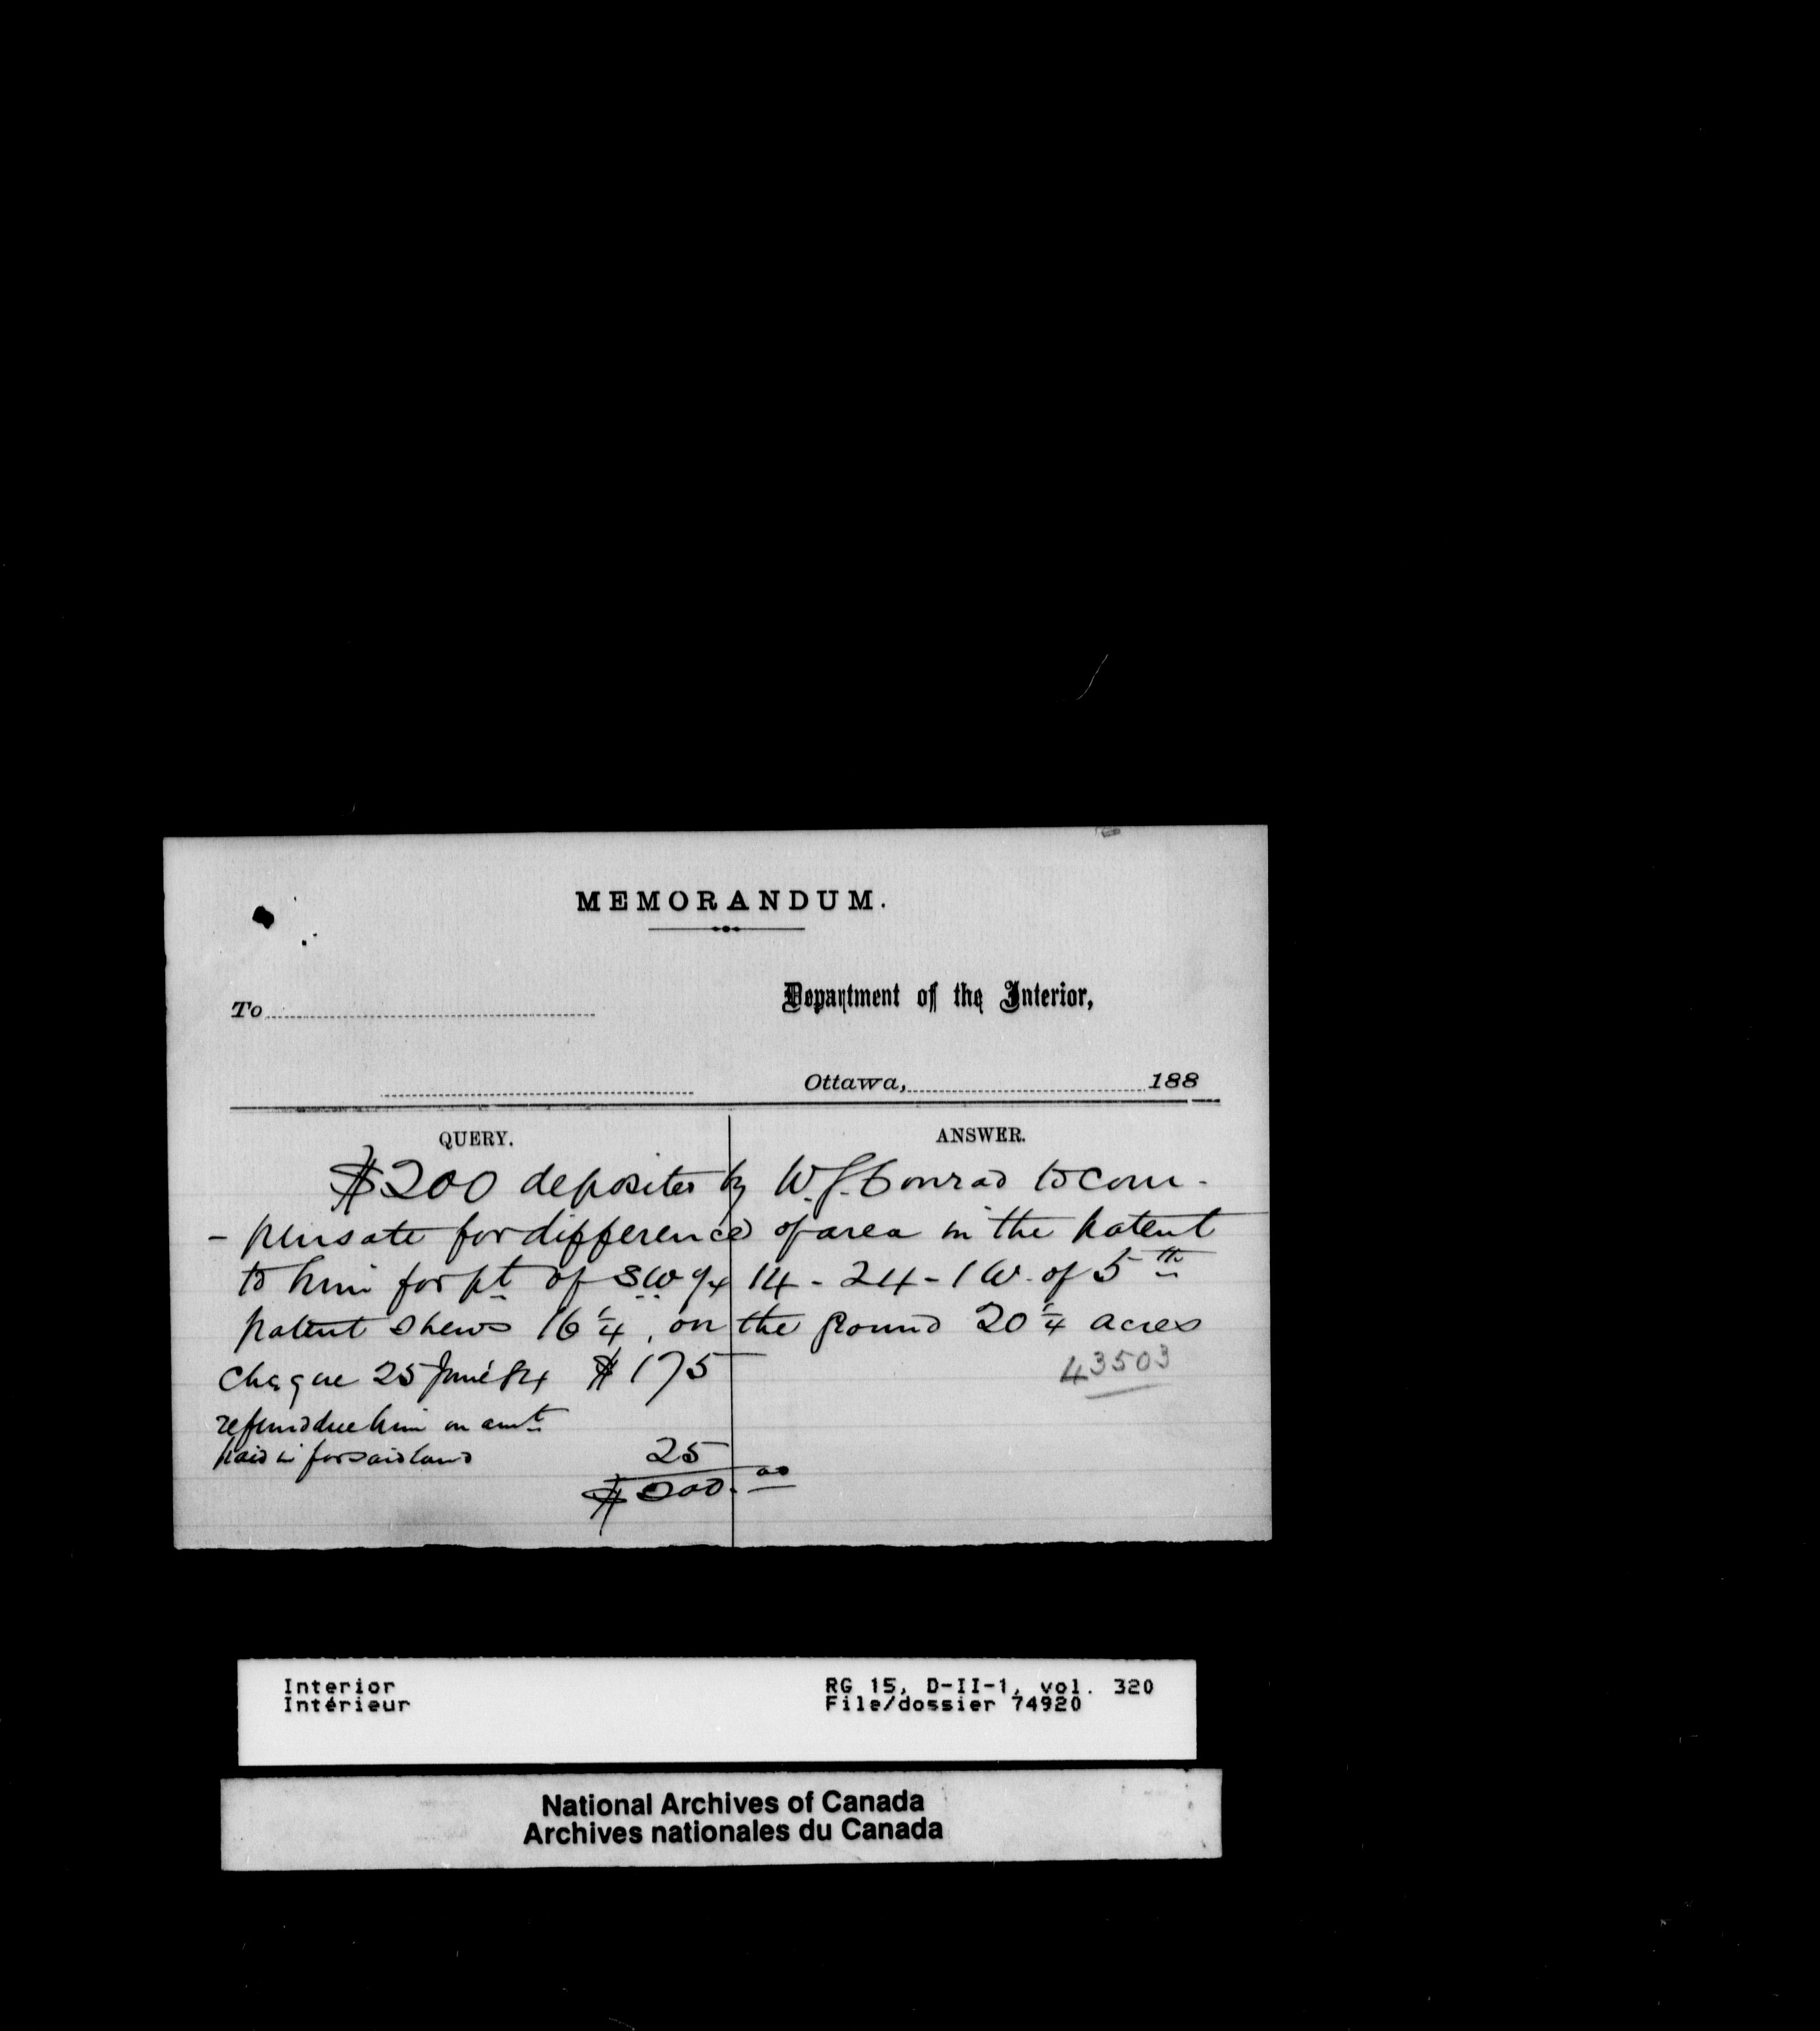 MEMORANDUM.
To
Department of the Interior,
Ottawa, 188
QUERY. ANSWER.
$200 deposited by W. J. Conrad to com-
- pensate for difference of area in the patent
to him for pt of SW ¼ 14 - 24 - 1 W. of 5th
patent shews 16 ¼, on the ground 20 ¼ acres
Cheque 25 June 84 $175
43503
refund due him on amt
paid in for said land 25
$200.00
Interior RG 15, D-II-1, vol. 320
Intérieur File/dossier 74920
National Archives of Canada
Archives nationales du Canada